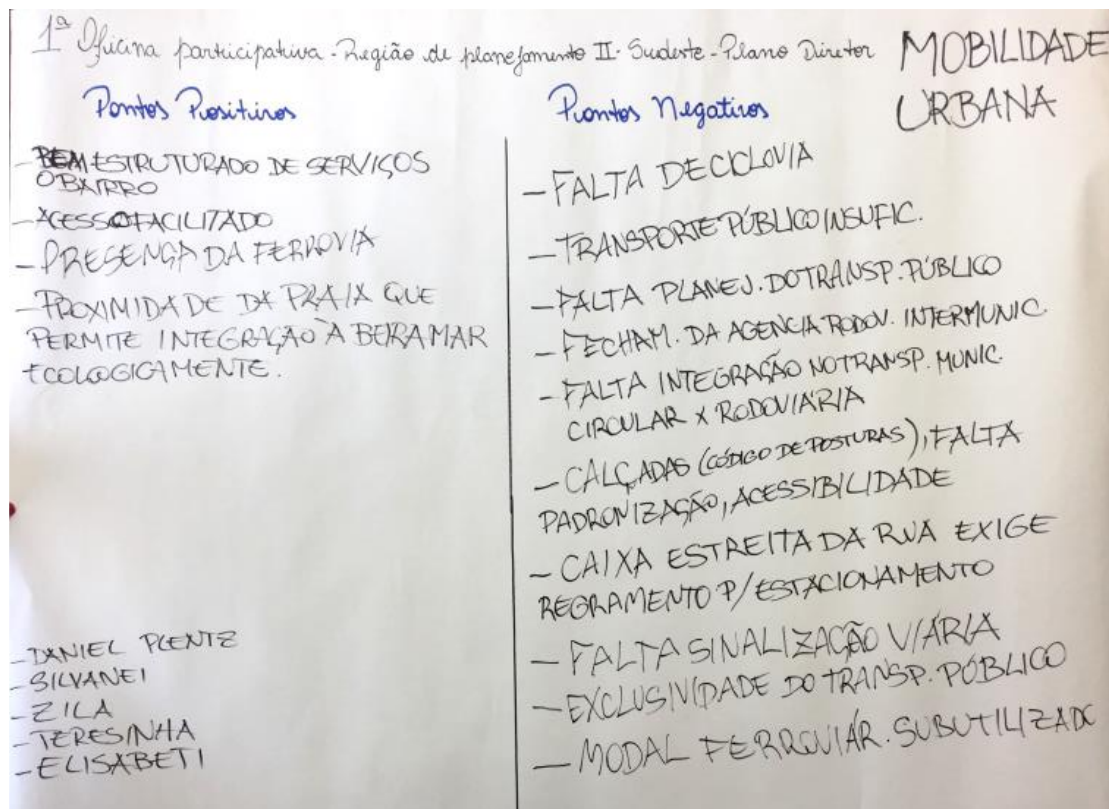 1ª Oficina participativa - Região de planejamento II - Sudeste - Plano Diretor
MOBILIDADE
URBANA
Pontos Positivos
- BEM ESTRUTURADO DE SERVIÇOS
O BAIRRO
- ACESSO FACILITADO
- PRESENÇA DA FERROVIA
- PROXIMIDADE DA PRAIA QUE
PERMITE INTEGRAÇÃO À BEIRA MAR
ECOLOGICAMENTE.
- DANIEL PLENTZ
- SILVANEI
- ZILA
- TERESINHA
- ELISABETI
Pontos Negativos
- FALTA DE CICLOVIA
- TRANSPORTE PÚBLICO INSUFIC.
- FALTA PLANEJ. DO TRANSP. PÚBLICO
- FECHAM. DA AGENCIA RODOV. INTERMUNIC.
- FALTA INTEGRAÇÃO NO TRANSP. MUNIC.
CIRCULAR X RODOVIÁRIA
- CALÇADAS (CÓDIGO DE POSTURAS), FALTA
PADRONIZAÇÃO, ACESSIBILIDADE
- CAIXA ESTREITA DA RUA EXIGE
REGRAMENTO P/ ESTACIONAMENTO
- FALTA SINALIZAÇÃO VIÁRIA
- EXCLUSIVIDADE DO TRANSP. PÚBLICO
- MODAL FERROVIÁR. SUBUTILIZADO